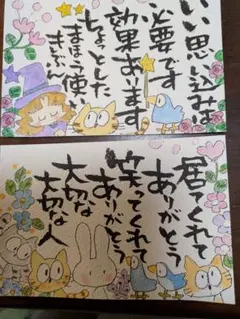 いい思い込みは
必要です
効果あります
ちょっとした
まほう使い
きぶん
居てくれて
ありがとう
笑ってくれて
ありがとう
大切な
大切な人